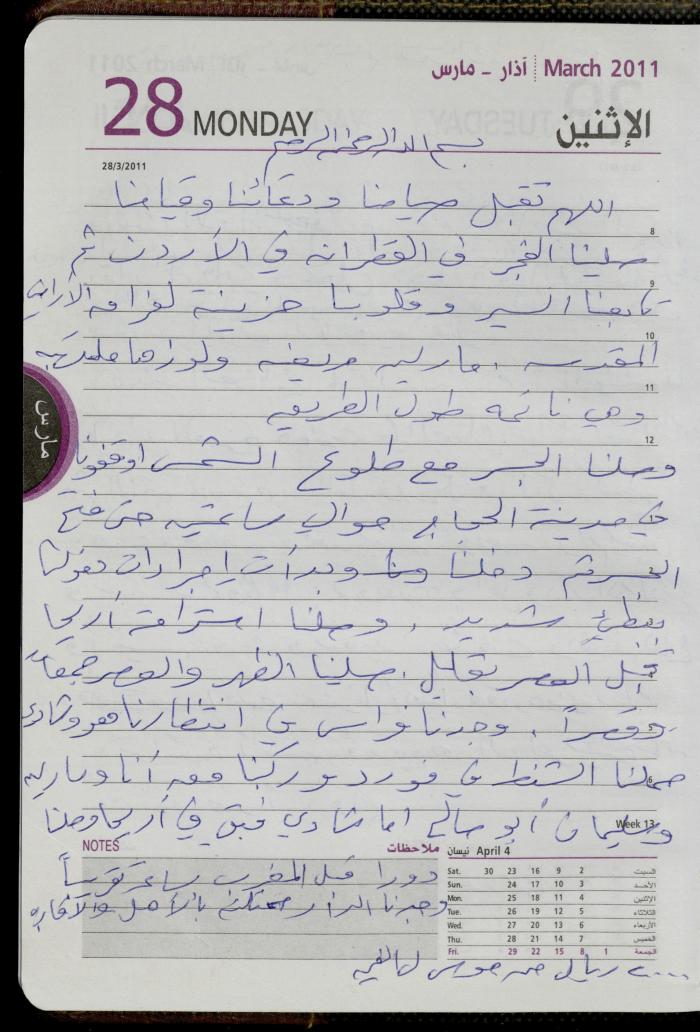 March 2011 آذار - مارس
28 MONDAY الإثنين
بسم الله الرحمن الرحيم
28/3/2011
اللهم تقبل صيامنا ودعائنا وقيامنا
8
صلينا الفجر في القطرانه في الأردن ثم
9
تابعنا السير وقلوبنا حزينة لفراق الأراضي
10
المقدسه . ماريه مريضه ولوزها ملتهبه
11
وهي نائمه طول الطريق
12
وصلنا الجسر مع طلوع الشمس اوقفونا
1
في مدينة الحجاج حوالي ساعتين حتى فتح
2
الجسر ثم دخلنا وبدأت إجراءات دخولنا
3
ببطئ شديد . وصلنا استراحة أريحا
4
قبل العصر بقليل . صلينا الظهر والعصر جمعاً
5
وقصراً . وجدنا فراس في انتظارنا هو وشادي
6
حملنا الشنط في فورد وركبنا معه أنا وماريه
مارس
وسليمان أبو صالح اما شادي فبقي في أريحا وصلنا
Week 13
NOTES ملاحظات
دورا قبل المغرب بساعة تقريباً
وجدنا الدار ممتلئة بالأهل والأقارب
April 4 نيسان
Sat. 30 23 16 9 2 السبت
Sun. 24 17 10 3 الأحد
Mon. 25 18 11 4 الإثنين
Tue. 26 19 12 5 الثلاثاء
Wed. 27 20 13 6 الأربعاء
Thu. 28 21 14 7 الخميس
Fri. 29 22 15 8 1 الجمعة
ريال من موسى